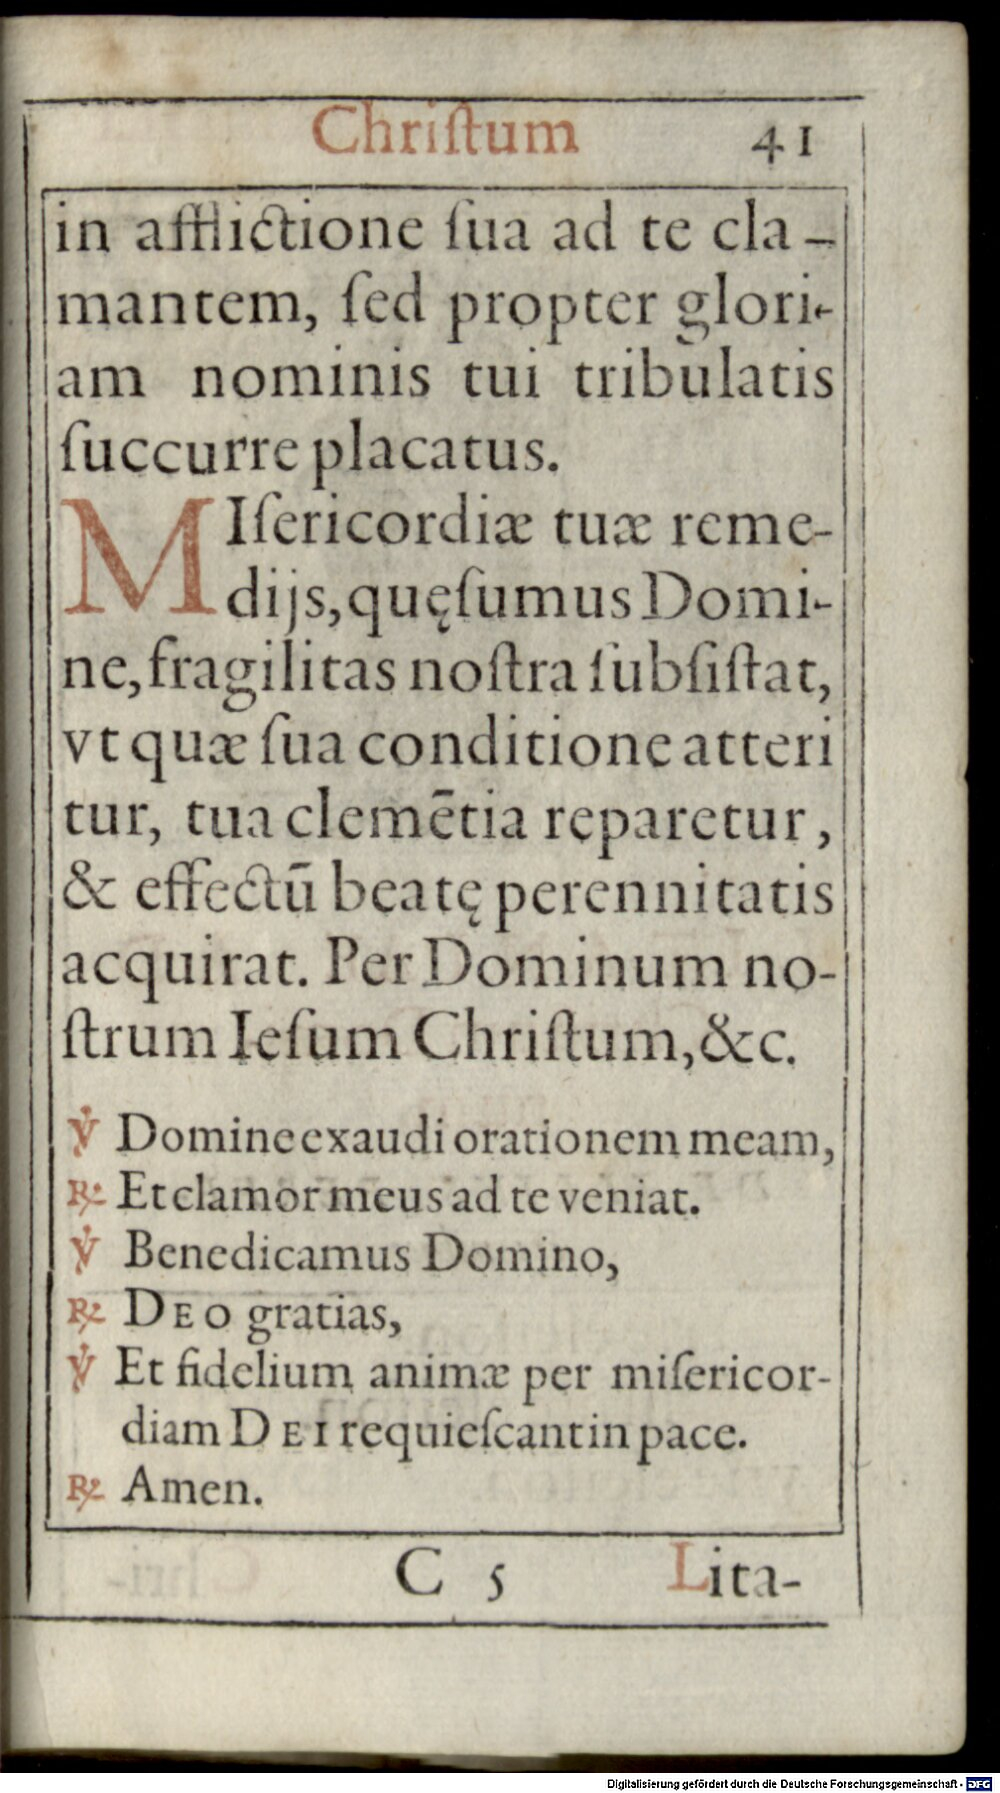 Chriſtum 41
in afflictione ſua ad te cla-
mantem, ſed propter glori-
am nominis tui tribulatis
ſuccurre placatus.
MIſericordiæ tuæ reme-
dijs, quęſumus Domi-
ne, fragilitas noſtra ſubſiſtat,
vt quæ ſua conditione atteri
tur, tua clemētia reparetur,
& effectū beatę perennitatis
acquirat. Per Dominum no-
ſtrum Ieſum Chriſtum, &c.
℣ Domine exaudi orationem meam,
℟ Et clamor meus ad te veniat.
℣ Benedicamus Domino,
℟ DEO gratias,
℣ Et fidelium animæ per miſericor-
diam DEI requieſcant in pace.
℟ Amen.
C 5 Lita-
Digitalisierung gefördert durch die Deutsche Forschungsgemeinschaft - DFG